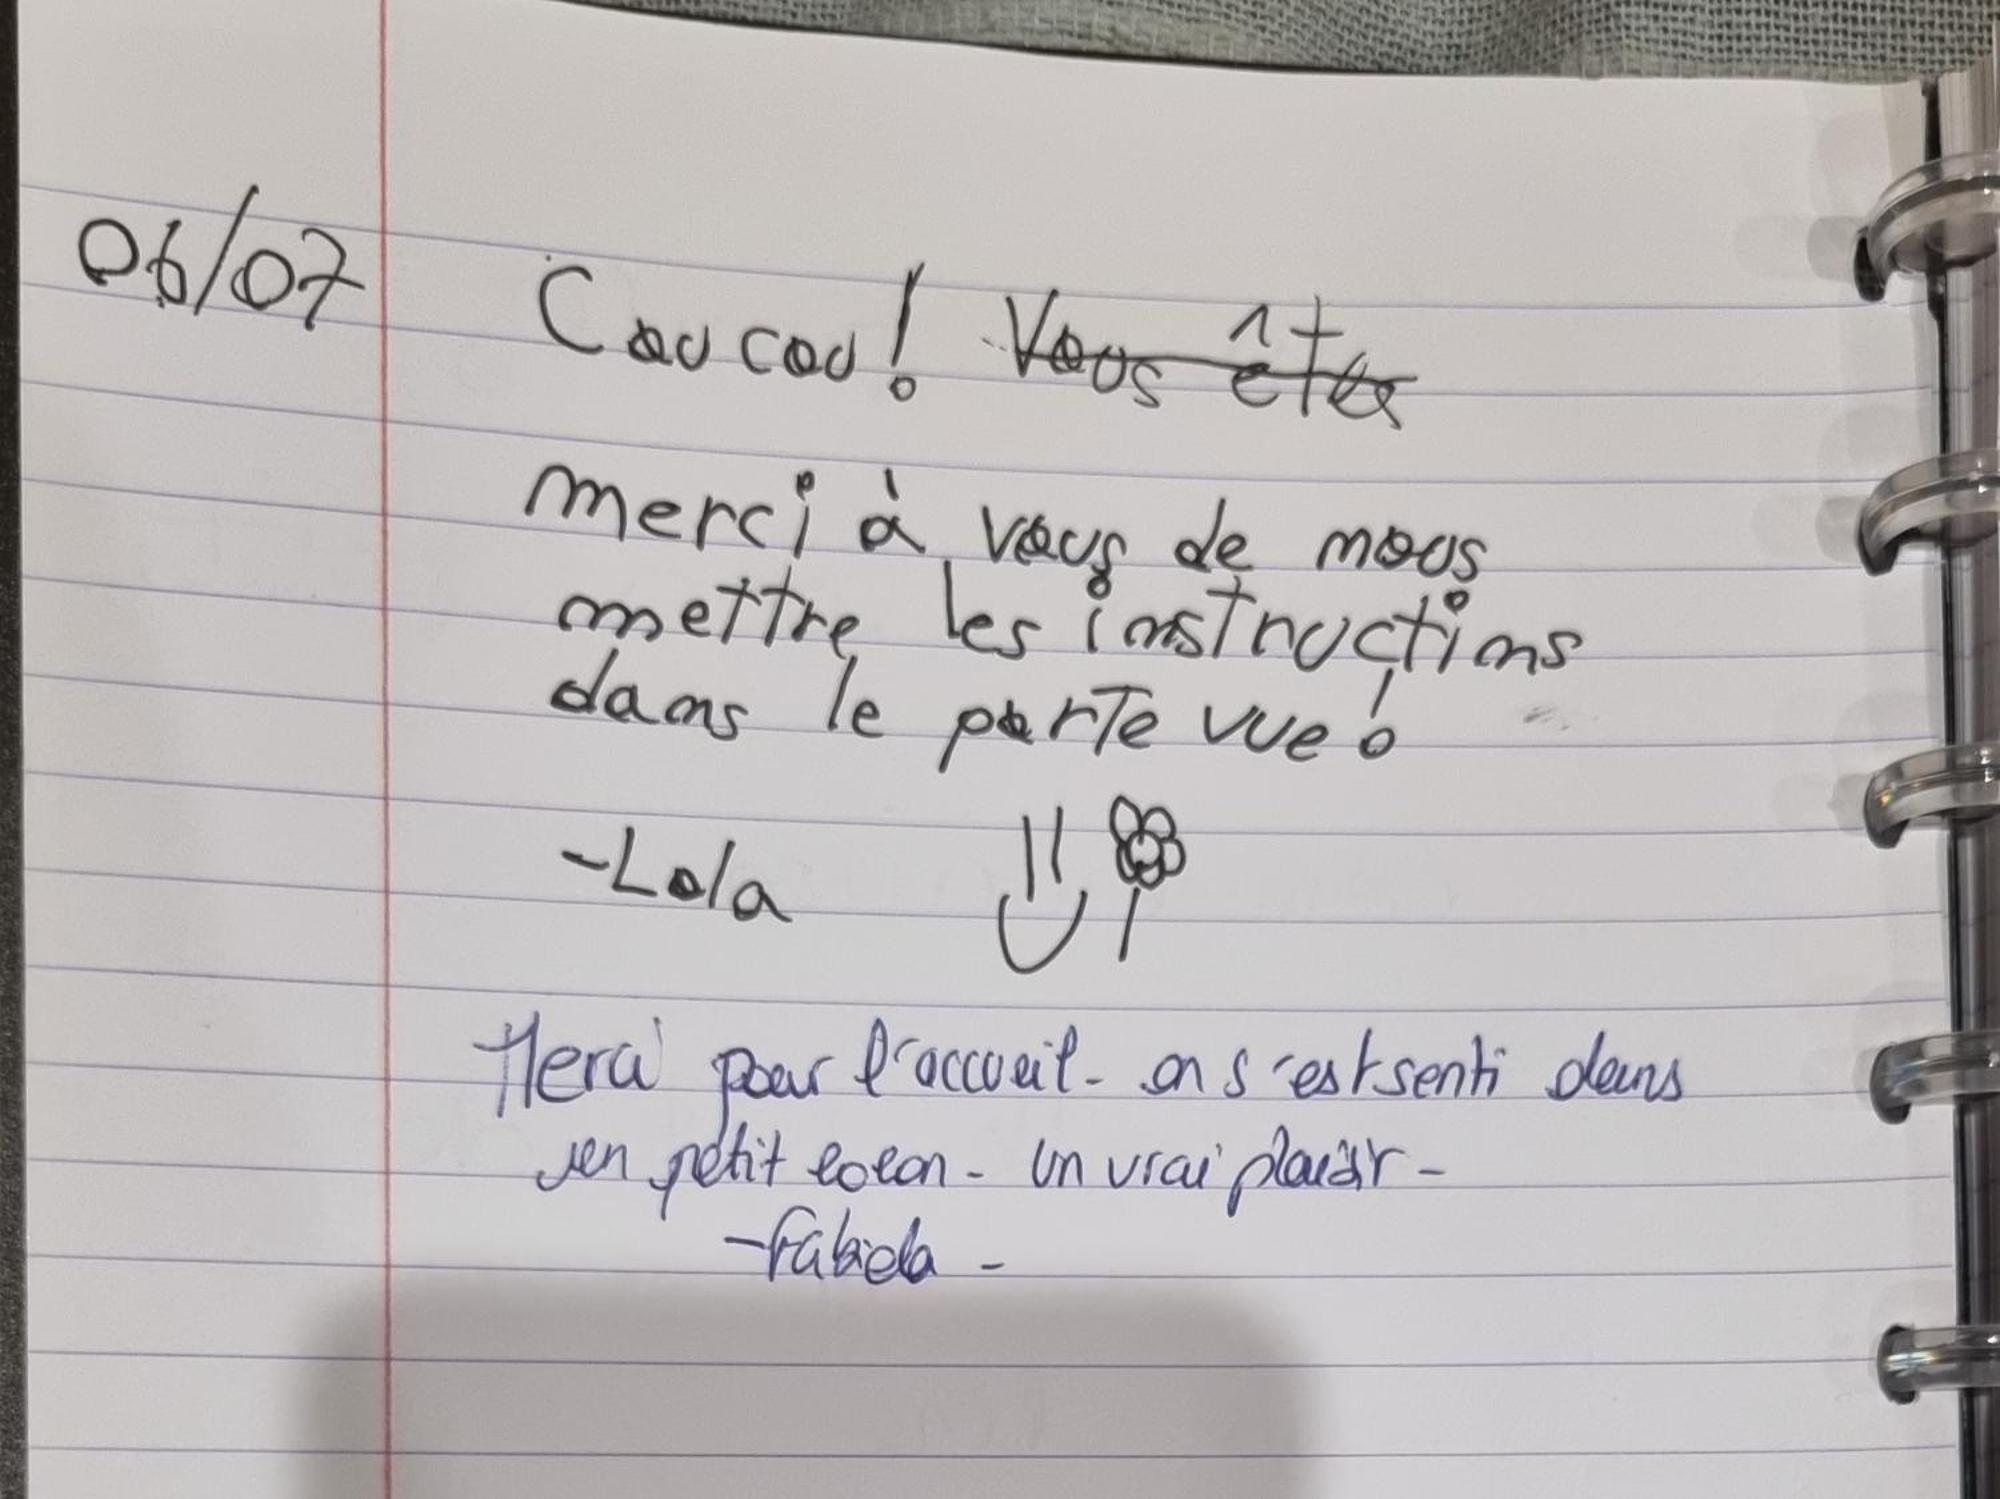 06/07 Coucou! ~~Vous êtes~~
merci à vous de nous
mettre les instructions
dans le porte vue!
-Lola
Merci pour l'accueil - on s'est senti dans
un petit cocon - un vrai plaisir -
- Fabiola -